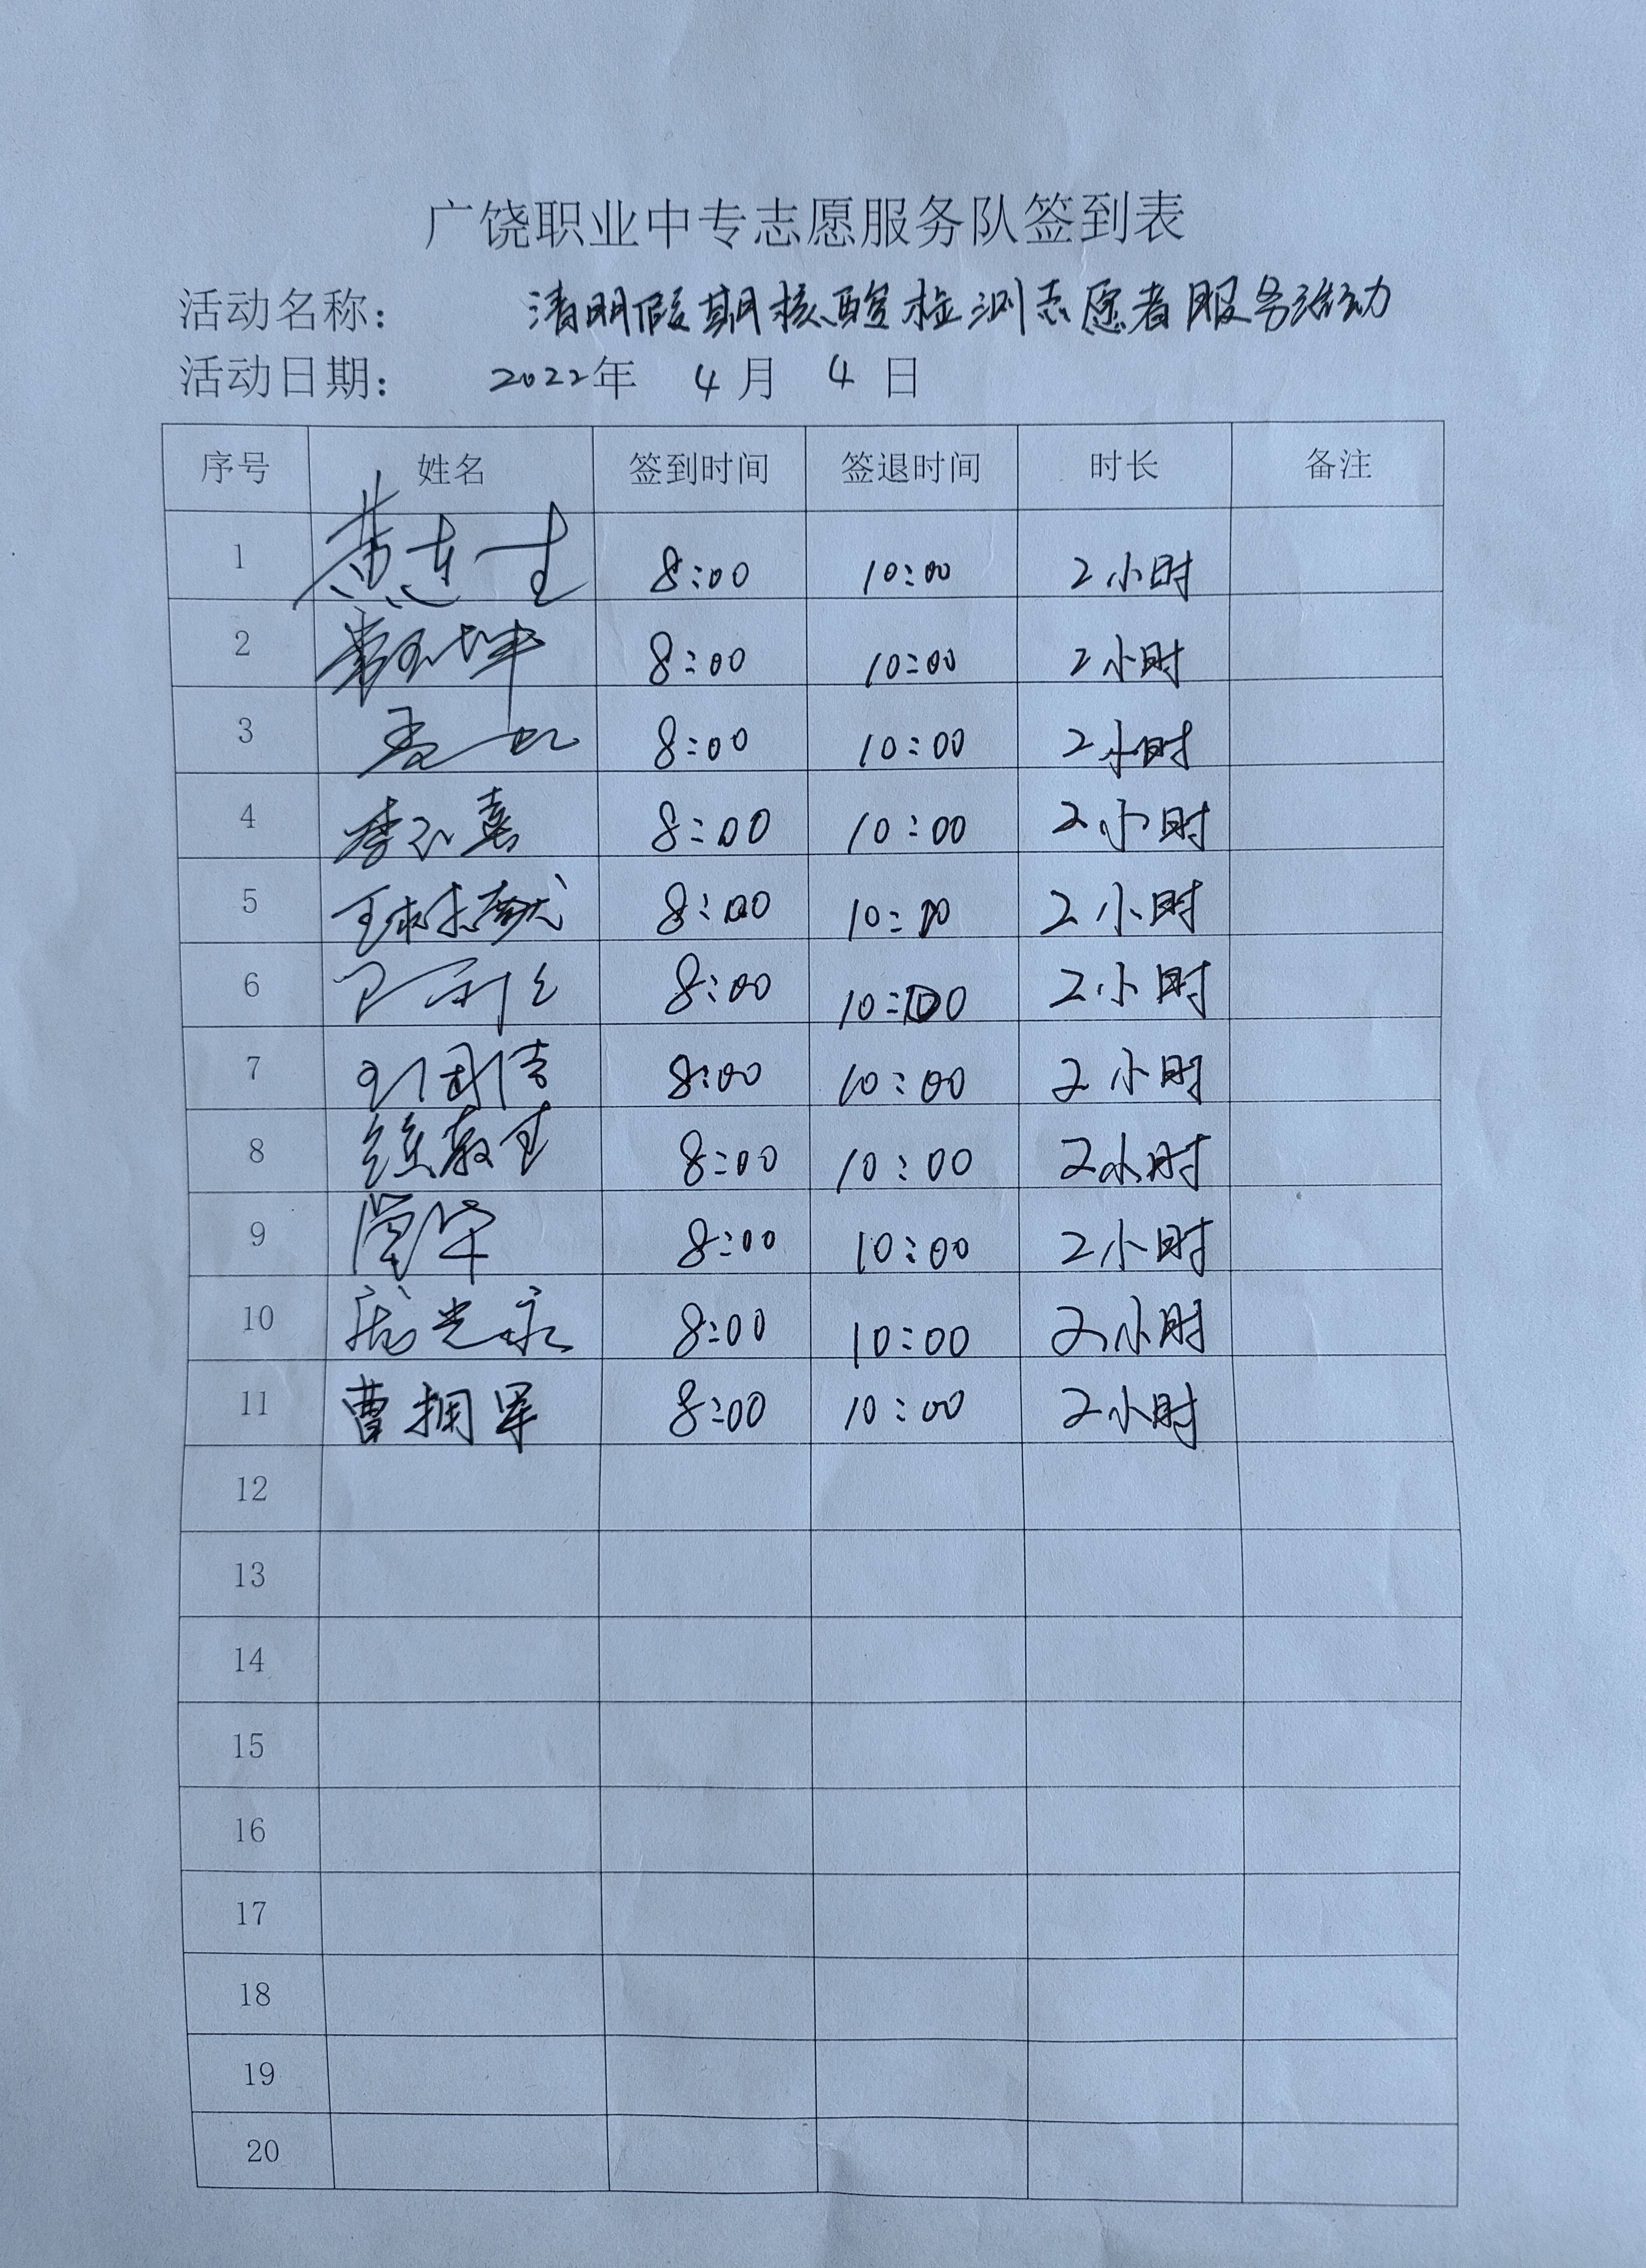 广饶职业中专志愿服务队签到表
活动名称： 清明假期核酸检测志愿者服务活动
活动日期： 2022年 4月 4日
序号 姓名 签到时间 签退时间 时长 备注
1 8:00 10:00 2小时
2 8:00 10:00 2小时
3 8:00 10:00 2小时
4 8:00 10:00 2小时
5 8:00 10:00 2小时
6 8:00 10:00 2小时
7 8:00 10:00 2小时
8 8:00 10:00 2小时
9 8:00 10:00 2小时
10 8:00 10:00 2小时
11 曹拥军 8:00 10:00 2小时
12
13
14
15
16
17
18
19
20